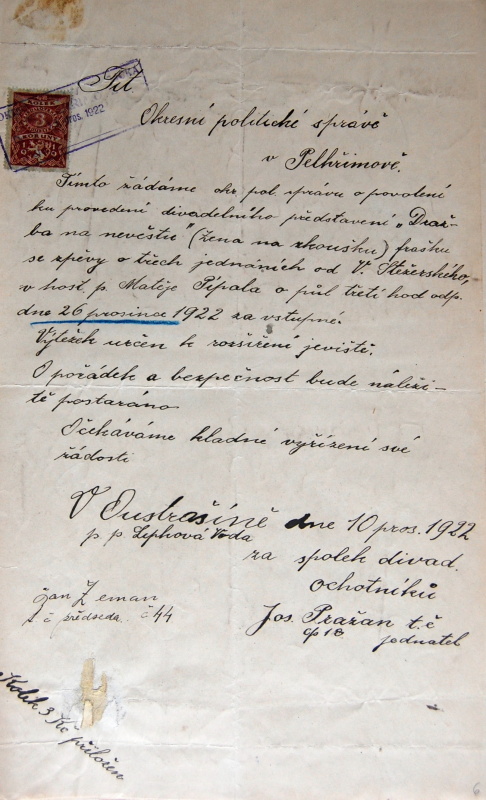 Tit
Okresní politické správě
v Pelhřimově.
Tímto žádáme okr. pol. správu o povolení
ku provedení divadelního představení „Draž-
ba na nevěstu" (žena na zkoušku) frašku
se zpěvy o třech jednáních od V. Stěžerského,
v host. p. Matěje Pípala o půl třetí hod odp.
dne 26 prosince 1922 za vstupné.
Výtěžek určen k rozšíření jeviště.
O pořádek a bezpečnost bude náleži-
tě postaráno.
Očekáváme kladné vyřízení své
žádosti
V Outrašíně dne 10 pros. 1922
p. p Lephová Voda
za spolek divad.
ochotníků
Jan Zeman
t. č předseda. č 44
Jos. Pražan t.č
čp 18
jednatel
Kolek 3 Kč přiložen
KOLEK
3
KORUNY
pros. 1922
6